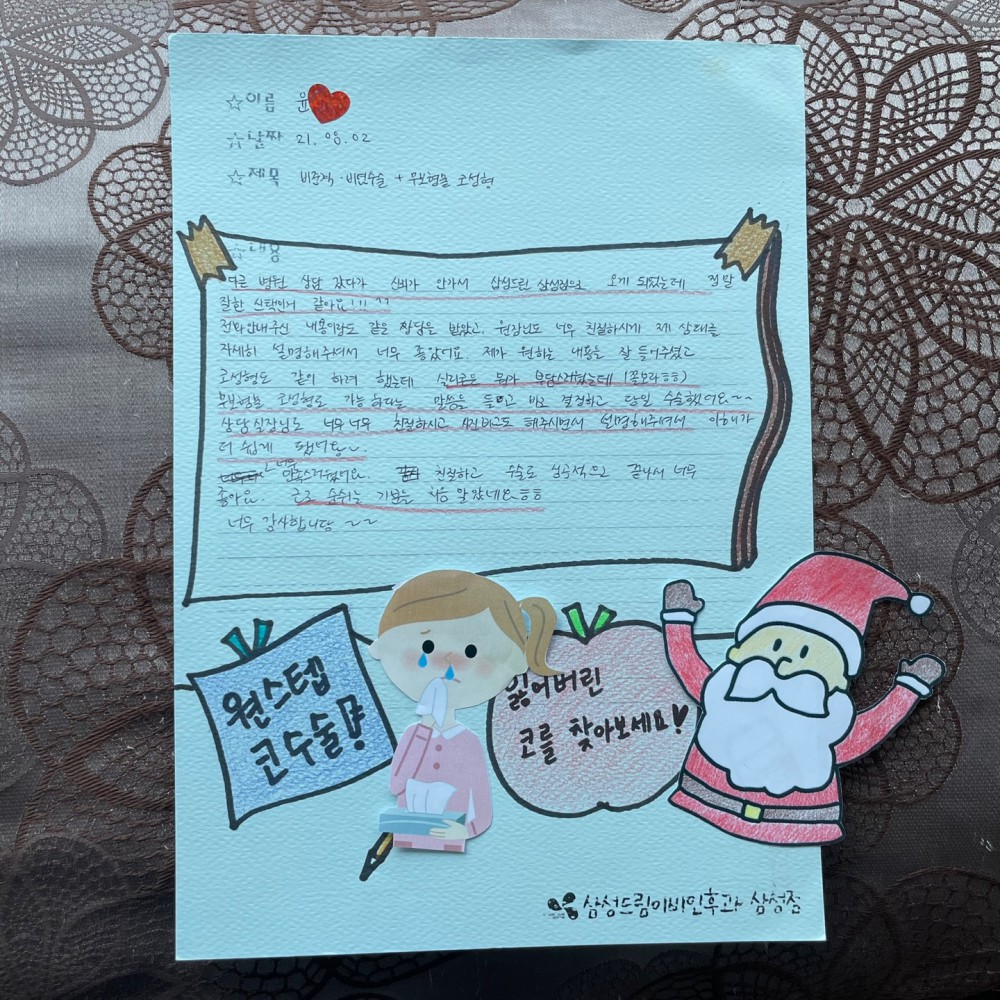 ☆이름 윤
☆날짜 21. 08. 02
☆제목 비중격·비염수술 + 무보형물 코성형
☆내용
다른 병원 상담 갔다가 신뢰가 안가서 삼성드림 삼성점으로 오게 되었는데 정말
잘한 선택인거 같아요!!! ^^
전화안내주신 내용이랑도 같은 진단을 받았고, 원장님도 너무 친절하시게 제 상태를
자세히 설명해주셔서 너무 좋았어요. 제가 원하는 내용을 잘 들어주셨고
코성형도 같이 하려 했는데 실리콘은 뭔가 부담스러웠는데 (쫄보라ㅎㅎ)
무보형물 코성형도 가능하다는 말씀을 듣고 바로 결정하고 당일 수술했어요~~
상담실장님도 너무너무 친절하시고 해주시면서 설명해주셔서 이해가
더 쉽게 됐어요~
너무 만족스러웠어요. 친절하고 수술도 성공적으로 끝나서 너무
좋아요. 코로 숨쉬는 기분을 처음 알았네요ㅎㅎ
너무 감사합니당 ~~
원스텝
코수술!
잃어버린
코를 찾아보세요!
삼성드림이비인후과 삼성점